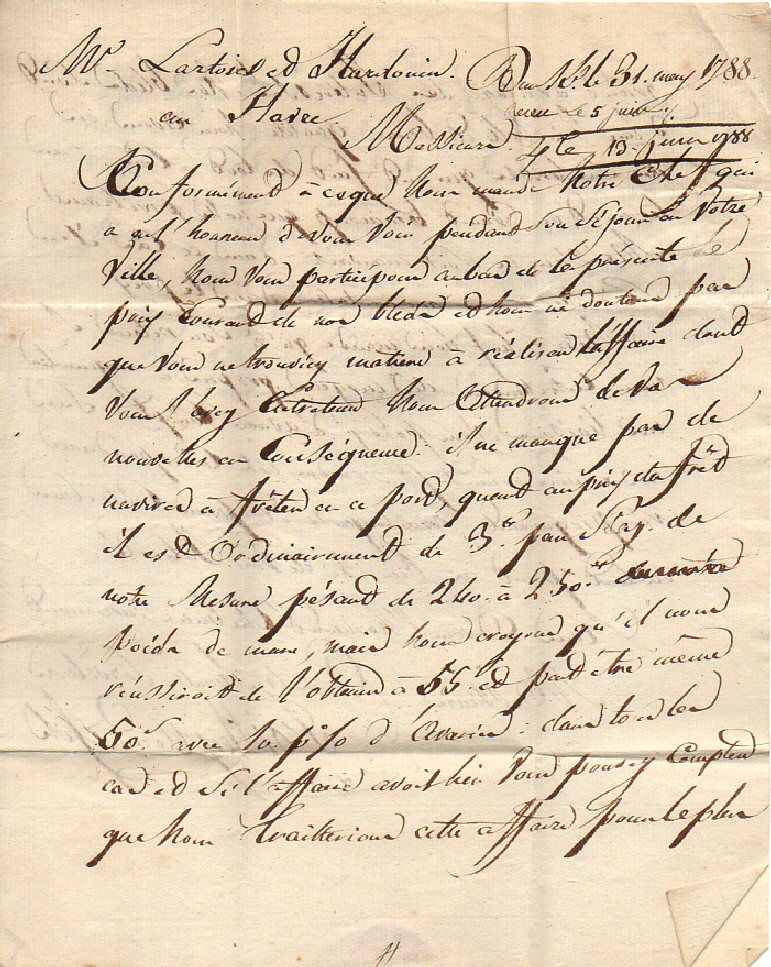 Mrs Lartois et Hardouin. le 31. may 1788.
au Havre reçue le 5 juin
Messieurs le 13. juin 1788
Conformément à ce que nous mande Notre Chef qui
a eu l'honneur de vous voir pendant son séjour en Votre
Ville, nous vous participons au bas de la présente le
prix Courant de nos bleds et nous ne doutons pas
que vous ne trouviez matiere à réaliser l'affaire dont
vous l'avez Entretenu Nous Attendrons de Vos
nouvelles en Conséquence. il ne manque pas de
navires à frêter en ce port, quand au prix du frêt
il est d'Ordinairement de 3.# par de
notre Mesure pésant de 240. à 250.#
poids de marc, mais nous croyons qu'il nous
réussiroit de l'obtenir à 55.s et peut être même
50.s avec 10. p% d'Avaries: dans tous les
cas et Si l'affaire avoit lieu Vous pouvez Compter
que Nous traitterions cette affaire pour le plus